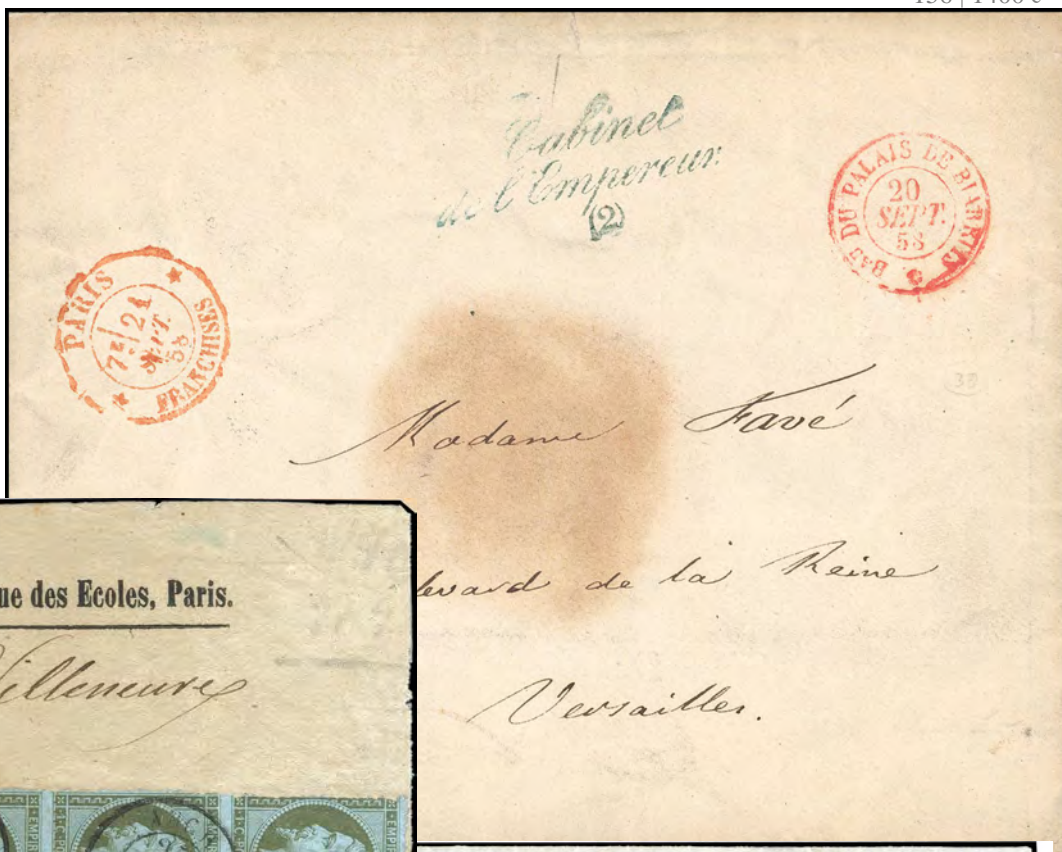 Cabinet
de l'Empereur.
(2)
BAU DU PALAIS DE BIARRITS
20
SEPT.
58
PARIS
7E 21
SEPT.
58
FRANCHISES
38
Madame Favé
levard de la Reine
Versailles.
ue des Ecoles, Paris.
Villeneuve